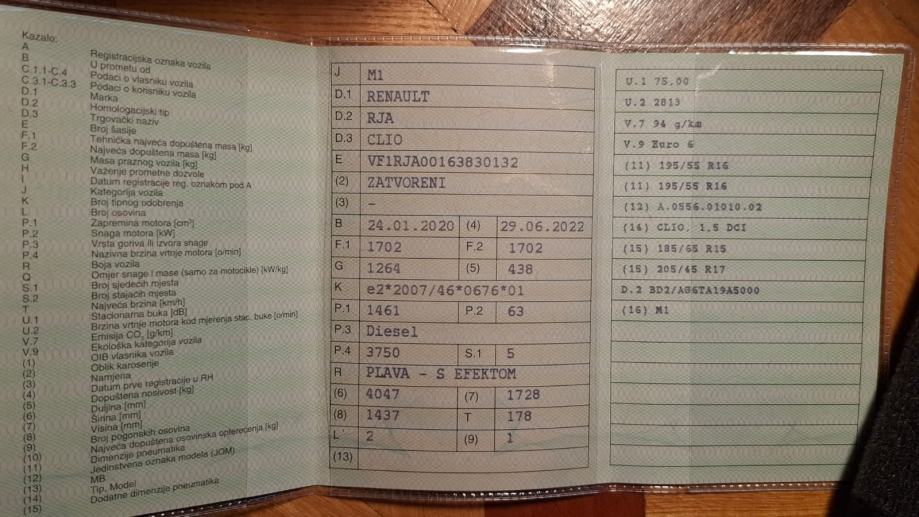 Kazalo:
A Registracijska oznaka vozila
B U prometu od
C.1.1-C.4 Podaci o vlasniku vozila
C.3.1-C.3.3 Podaci o korisniku vozila
D.1 Marka
D.2 Homologacijski tip
D.3 Trgovački naziv
E Broj šasije
F.1 Tehnička najveća dopuštena masa [kg]
F.2 Najveća dopuštena masa [kg]
G Masa praznog vozila [kg]
H Važenje prometne dozvole
I Datum registracije reg. oznakom pod A
J Kategorija vozila
K Broj tipnog odobrenje
L Broj osovina
P.1 Zapremina motora [cm³]
P.2 Snaga motora [kW]
P.3 Vrsta goriva ili izvora snage
P.4 Nazivna brzina vrtnje motora [o/min]
R Boja vozila
Q Omjer snage i mase (samo za motocikle) [kW/kg]
S.1 Broj sjedećih mjesta
S.2 Broj stajaćih mjesta
T Najveća brzina [km/h]
U.1 Stacionarna buka [dB]
U.2 Brzina vrtnje motora kod mjerenja stac. buke [o/min]
V.7 Emisija CO₂ [g/km]
V.9 Ekološka kategorija vozila
(1) OIB vlasnika vozila
(2) Oblik karoserije
(3) Namjena
(4) Datum prve registracije u RH
(5) Dopuštena nosivost [kg]
(6) Duljina [mm]
(7) Širina [mm]
(8) Visina [mm]
(9) Broj pogonskih osovina
(10) Najveća dopuštena osovinska opterećenja [kg]
(11) Dimenzije pneumatika
(12) Jedinstvena oznaka modela (JOM)
(13) MB
(14) Tip, Model
(15) Dodatne dimenzije pneumatika
J M1
D.1 RENAULT
D.2 RJA
D.3 CLIO
E VF1RJA00163830132
(2) ZATVORENI
(3) -
B 24.01.2020 (4) 29.06.2022
F.1 1702 F.2 1702
G 1264 (5) 438
K e2*2007/46*0676*01
P.1 1461 P.2 63
P.3 Diesel
P.4 3750 S.1 5
R PLAVA - S EFEKTOM
(6) 4047 (7) 1728
(8) 1437 T 178
L 2 (9) 1
(13)
U.1 75,00
U.2 2813
V.7 94 g/km
V.9 Euro 6
(11) 195/55 R16
(11) 195/55 R16
(12) A.0556.01010.02
(14) CLIO, 1.5 DCI
(15) 185/65 R15
(15) 205/45 R17
D.2 BD2/AG6TA19A5000
(16) M1